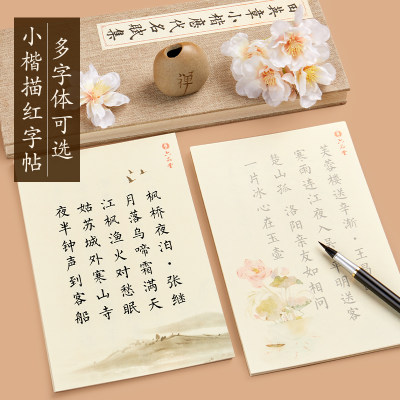 多字体可选
小楷描红字帖
田英章小楷唐代名賦集
禪
六品堂
枫桥夜泊·张继
月落乌啼霜满天
江枫渔火对愁眠
姑苏城外寒山寺
夜半钟声到客船
六品堂
芙蓉楼送辛渐·王昌
寒雨连江夜入吴 明送客
楚山孤 洛阳亲友如相问
一片冰心在玉壶